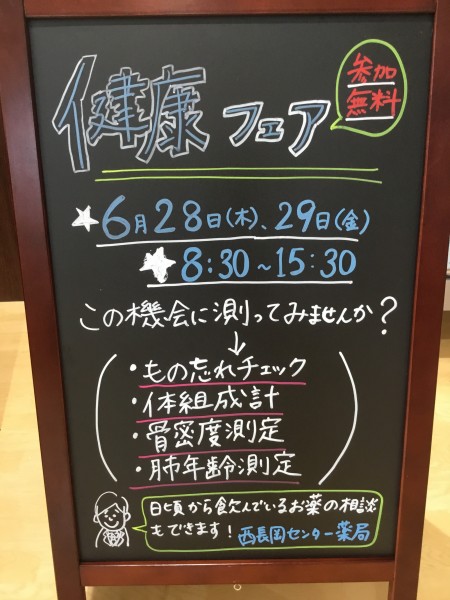 健康フェア
参加
無料
★6月28日(木)、29日(金)
★8:30~15:30
この機会に測ってみませんか?
↓
・もの忘れチェック
・体組成計
・骨密度測定
・肺年齢測定
日頃から飲んでいるお薬の相談
もできます! 西長岡センター薬局